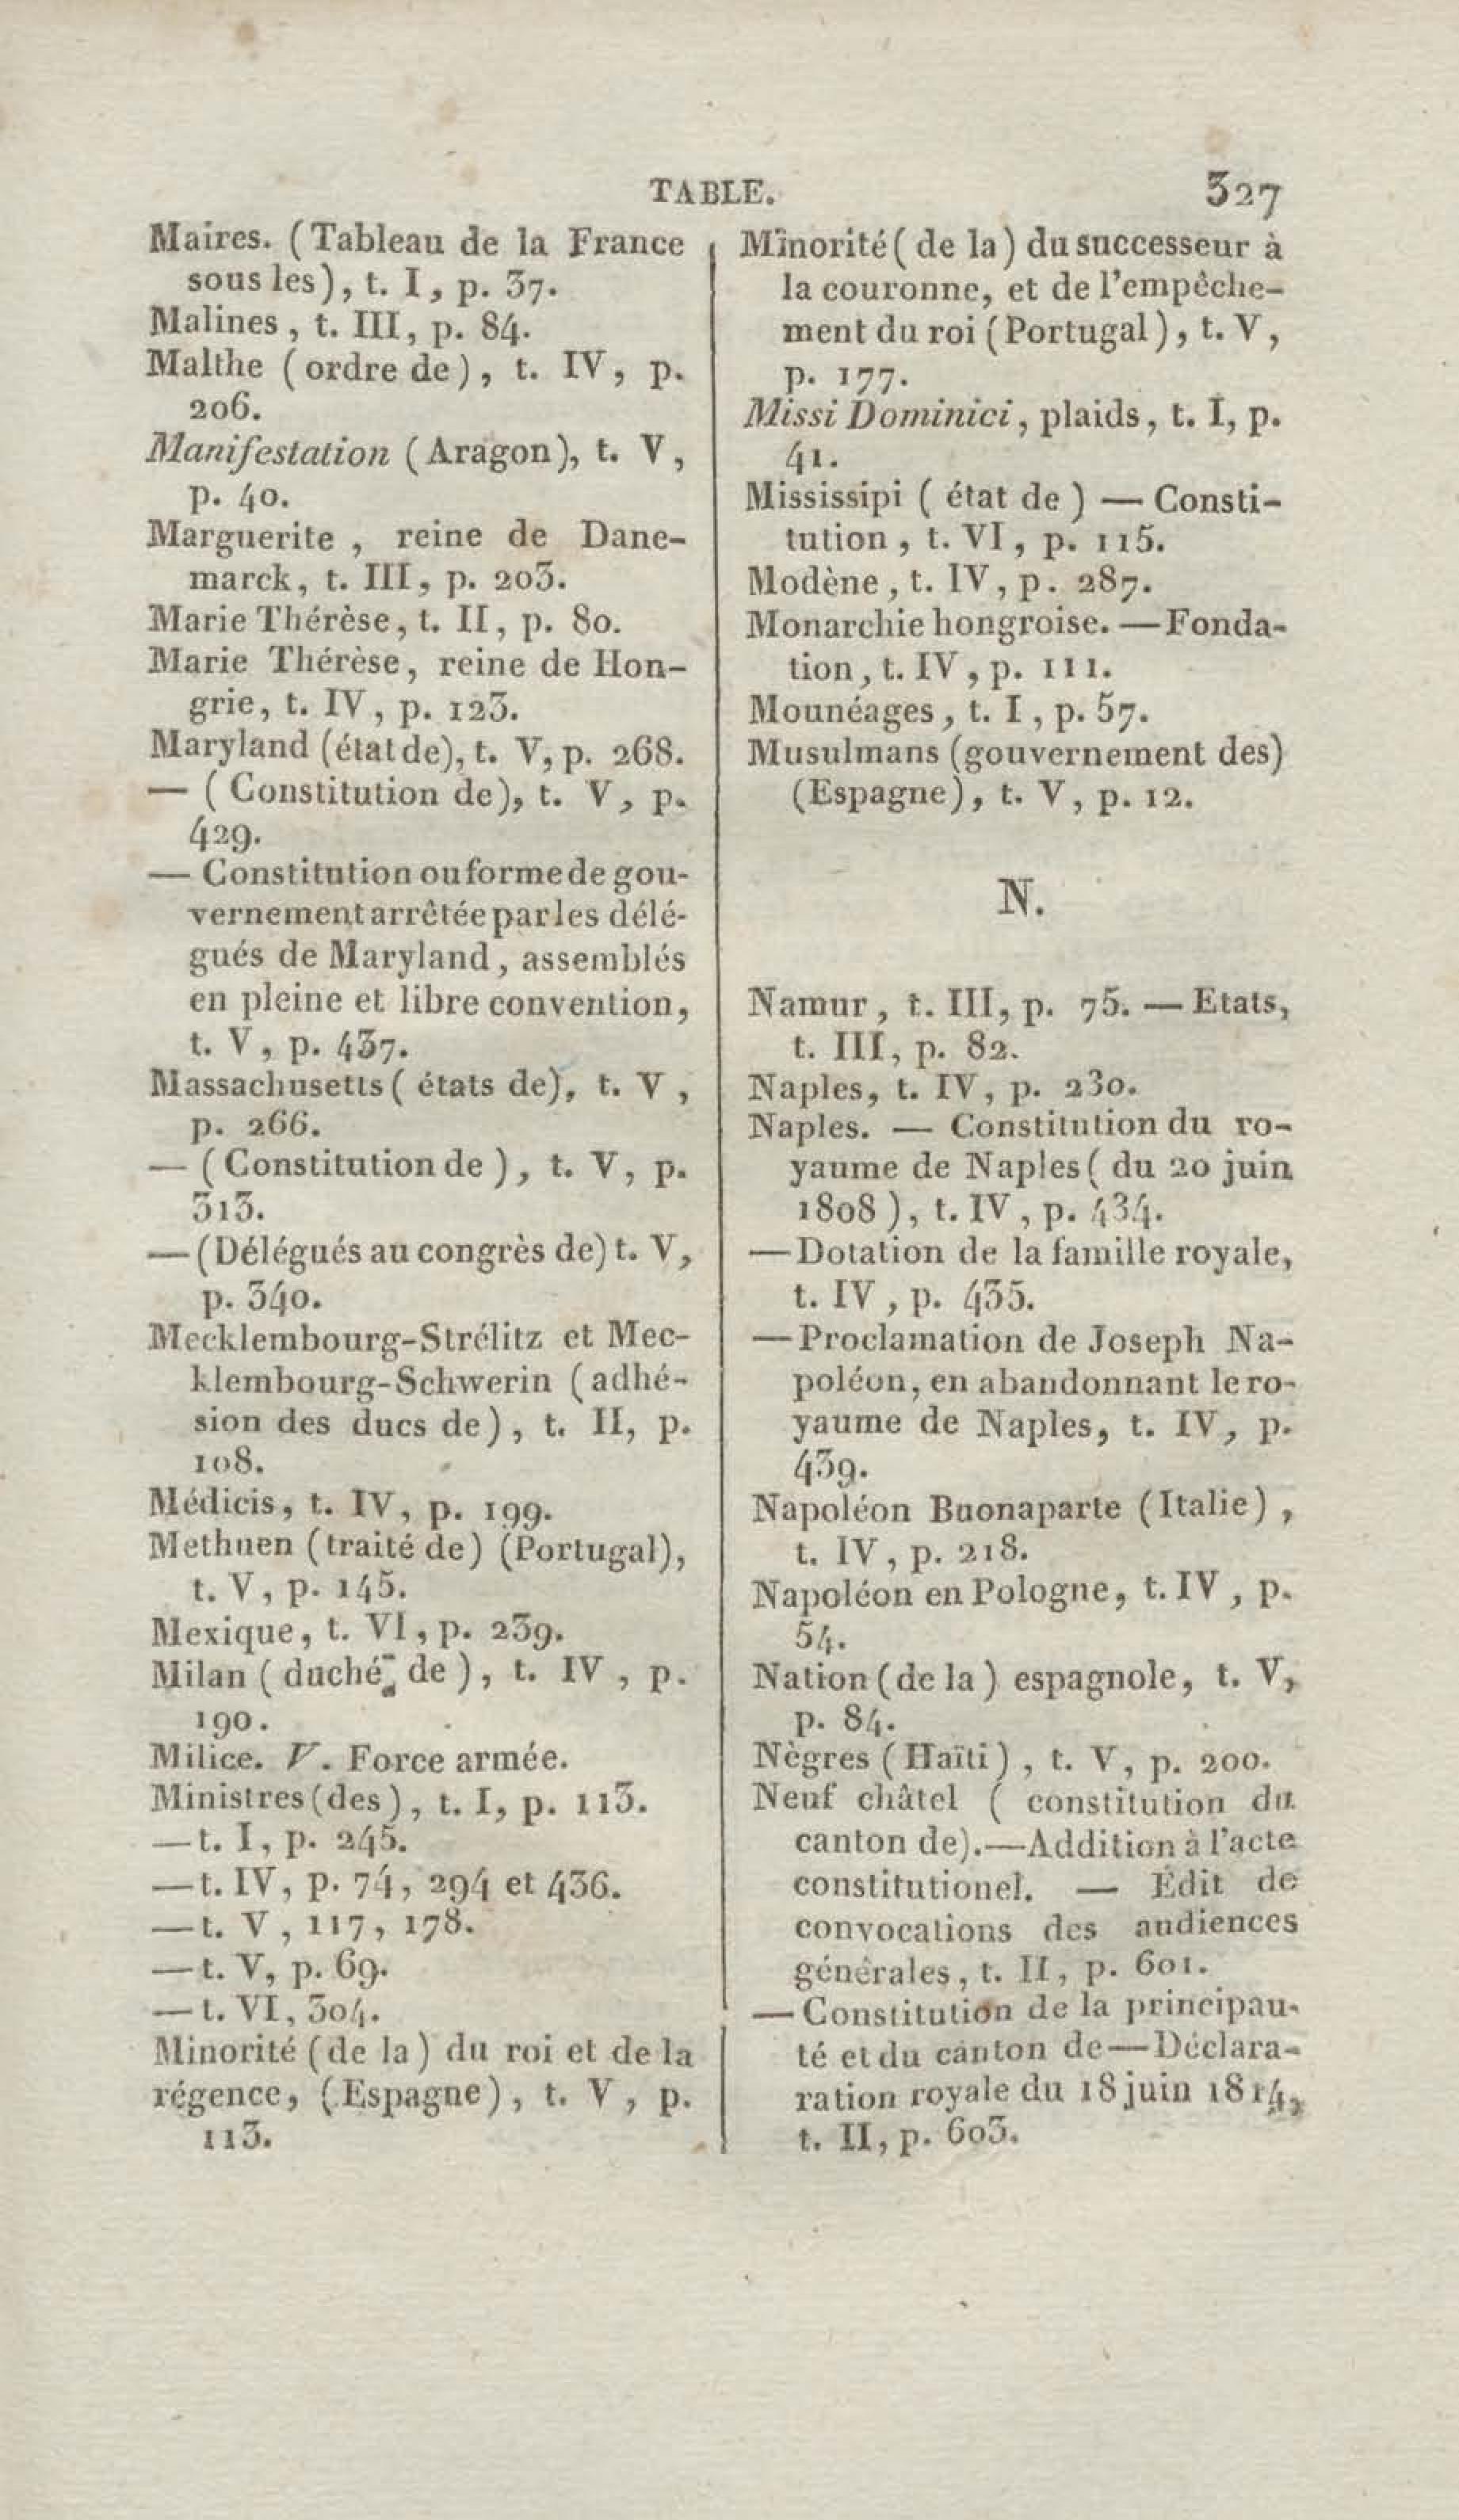 TABLE. 327
Maires. (Tableau de la France
sous les), t. I, p. 37.
Malines, t. III, p. 84.
Malthe (ordre de), t. IV, p.
206.
Manifestation (Aragon), t. V,
p. 40.
Marguerite, reine de Dane-
marck, t. III, p. 203.
Marie Thérèse, t. II, p. 80.
Marie Thérèse, reine de Hon-
grie, t. IV, p. 123.
Maryland (état de), t. V, p. 268.
— (Constitution de), t. V, p.
429.
— Constitution ou forme de gou-
vernement arrêtée par les délé-
gués de Maryland, assemblés
en pleine et libre convention,
t. V, p. 437.
Massachusetts (états de), t. V,
p. 266.
— (Constitution de), t. V, p.
313.
— (Délégués au congrès de) t. V,
p. 340.
Mecklembourg-Strélitz et Mec-
klembourg-Schwerin (adhé-
sion des ducs de), t. II, p.
108.
Médicis, t. IV, p. 199.
Methuen (traité de) (Portugal),
t. V, p. 145.
Mexique, t. VI, p. 239.
Milan (duché de), t. IV, p.
190.
Milice. V. Force armée.
Ministres (des), t. I, p. 113.
— t. I, p. 245.
— t. IV, p. 74, 294 et 436.
— t. V, 117, 178.
— t. V, p. 69.
— t. VI, 304.
Minorité (de la) du roi et de la
régence, (Espagne), t. V, p.
113.
Minorité (de la) du successeur à
la couronne, et de l'empêche-
ment du roi (Portugal), t. V,
p. 177.
Missi Dominici, plaids, t. I, p.
41.
Mississipi (état de) — Consti-
tution, t. VI, p. 115.
Modène, t. IV, p. 287.
Monarchie hongroise. — Fonda-
tion, t. IV, p. 111.
Mounéages, t. I, p. 57.
Musulmans (gouvernement des)
(Espagne), t. V, p. 12.
N.
Namur, t. III, p. 75. — Etats,
t. III, p. 82.
Naples, t. IV, p. 230.
Naples. — Constitution du ro-
yaume de Naples (du 20 juin
1808), t. IV, p. 434.
— Dotation de la famille royale,
t. IV, p. 435.
— Proclamation de Joseph Na-
poléon, en abandonnant le ro-
yaume de Naples, t. IV, p.
439.
Napoléon Buonaparte (Italie),
t. IV, p. 218.
Napoléon en Pologne, t. IV, p.
54.
Nation (de la) espagnole, t. V,
p. 84.
Nègres (Haïti), t. V, p. 200.
Neuf châtel (constitution du
canton de). — Addition à l'acte
constitutionel. — Édit de
convocations des audiences
générales, t. II, p. 601.
— Constitution de la principau-
té et du canton de — Déclara-
ration royale du 18 juin 1814,
t. II, p. 603.